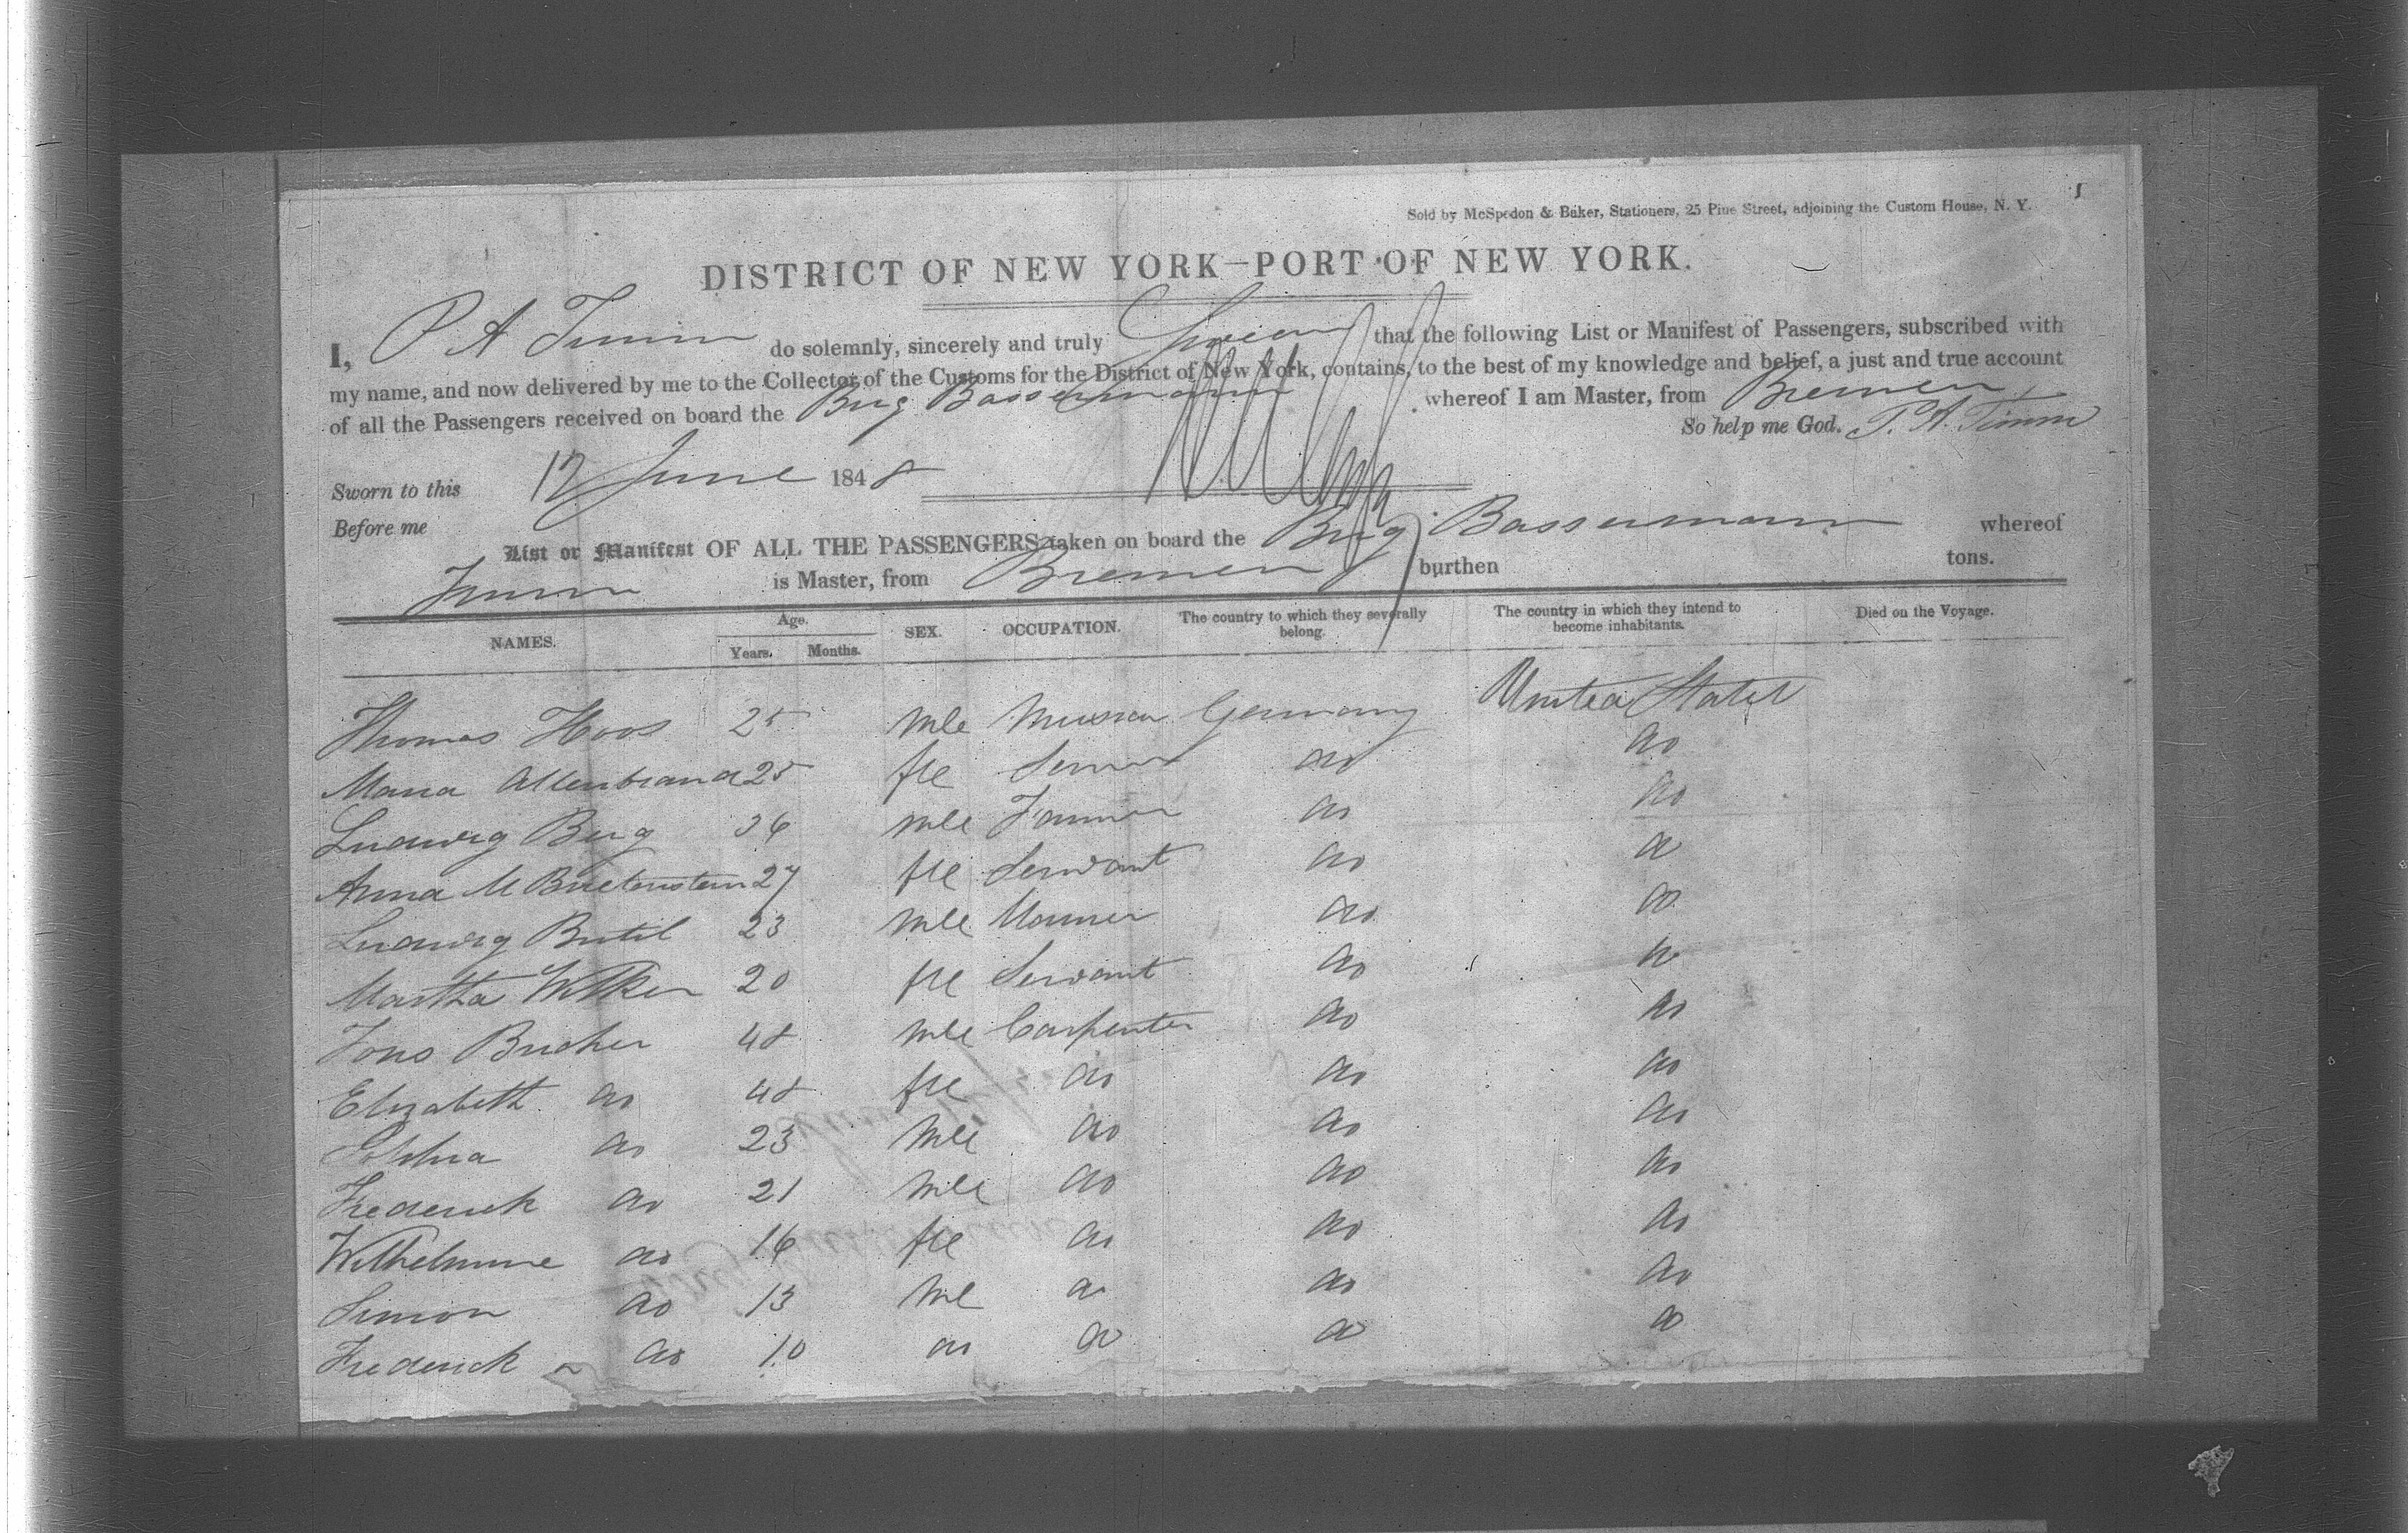 Sold by McSpedon & Baker, Stationers, 25 Pine Street, adjoining the Custom House, N. Y.
DISTRICT OF NEW YORK—PORT OF NEW YORK.
I, P A Timm do solemnly, sincerely and truly Swear that the following List or Manifest of Passengers, subscribed with
my name, and now delivered by me to the Collector of the Customs for the District of New York, contains, to the best of my knowledge and belief, a just and true account
of all the Passengers received on board the Brig Bassermann whereof I am Master, from Bremen
So help me God. P. A. Timm
Sworn to this 12 June 1848
Before me
List or Manifest OF ALL THE PASSENGERS taken on board the Brig Bassermann whereof
Timm is Master, from Bremen burthen tons.
NAMES. Age. Years. Months. SEX. OCCUPATION. The country to which they severally belong. The country in which they intend to become inhabitants. Died on the Voyage.
Thomas Hoos 25 mle Germany United States
Maria Allenbrand 25 fle do do
Ludwig Berg 36 mle Farmer do do
Anna M 27 fle Servant do do
Ludwig 23 mle do do
Martha Wilker 20 fle Servant do do
Bucher 48 mle Carpenter do do
Elizabeth do 48 fle do do do
do 23 mle do do do
Frederick do 21 mle do do do
Wilhelmine do 16 fle do do do
Simon do 13 mle do do do
Frederick do 10 do do do do